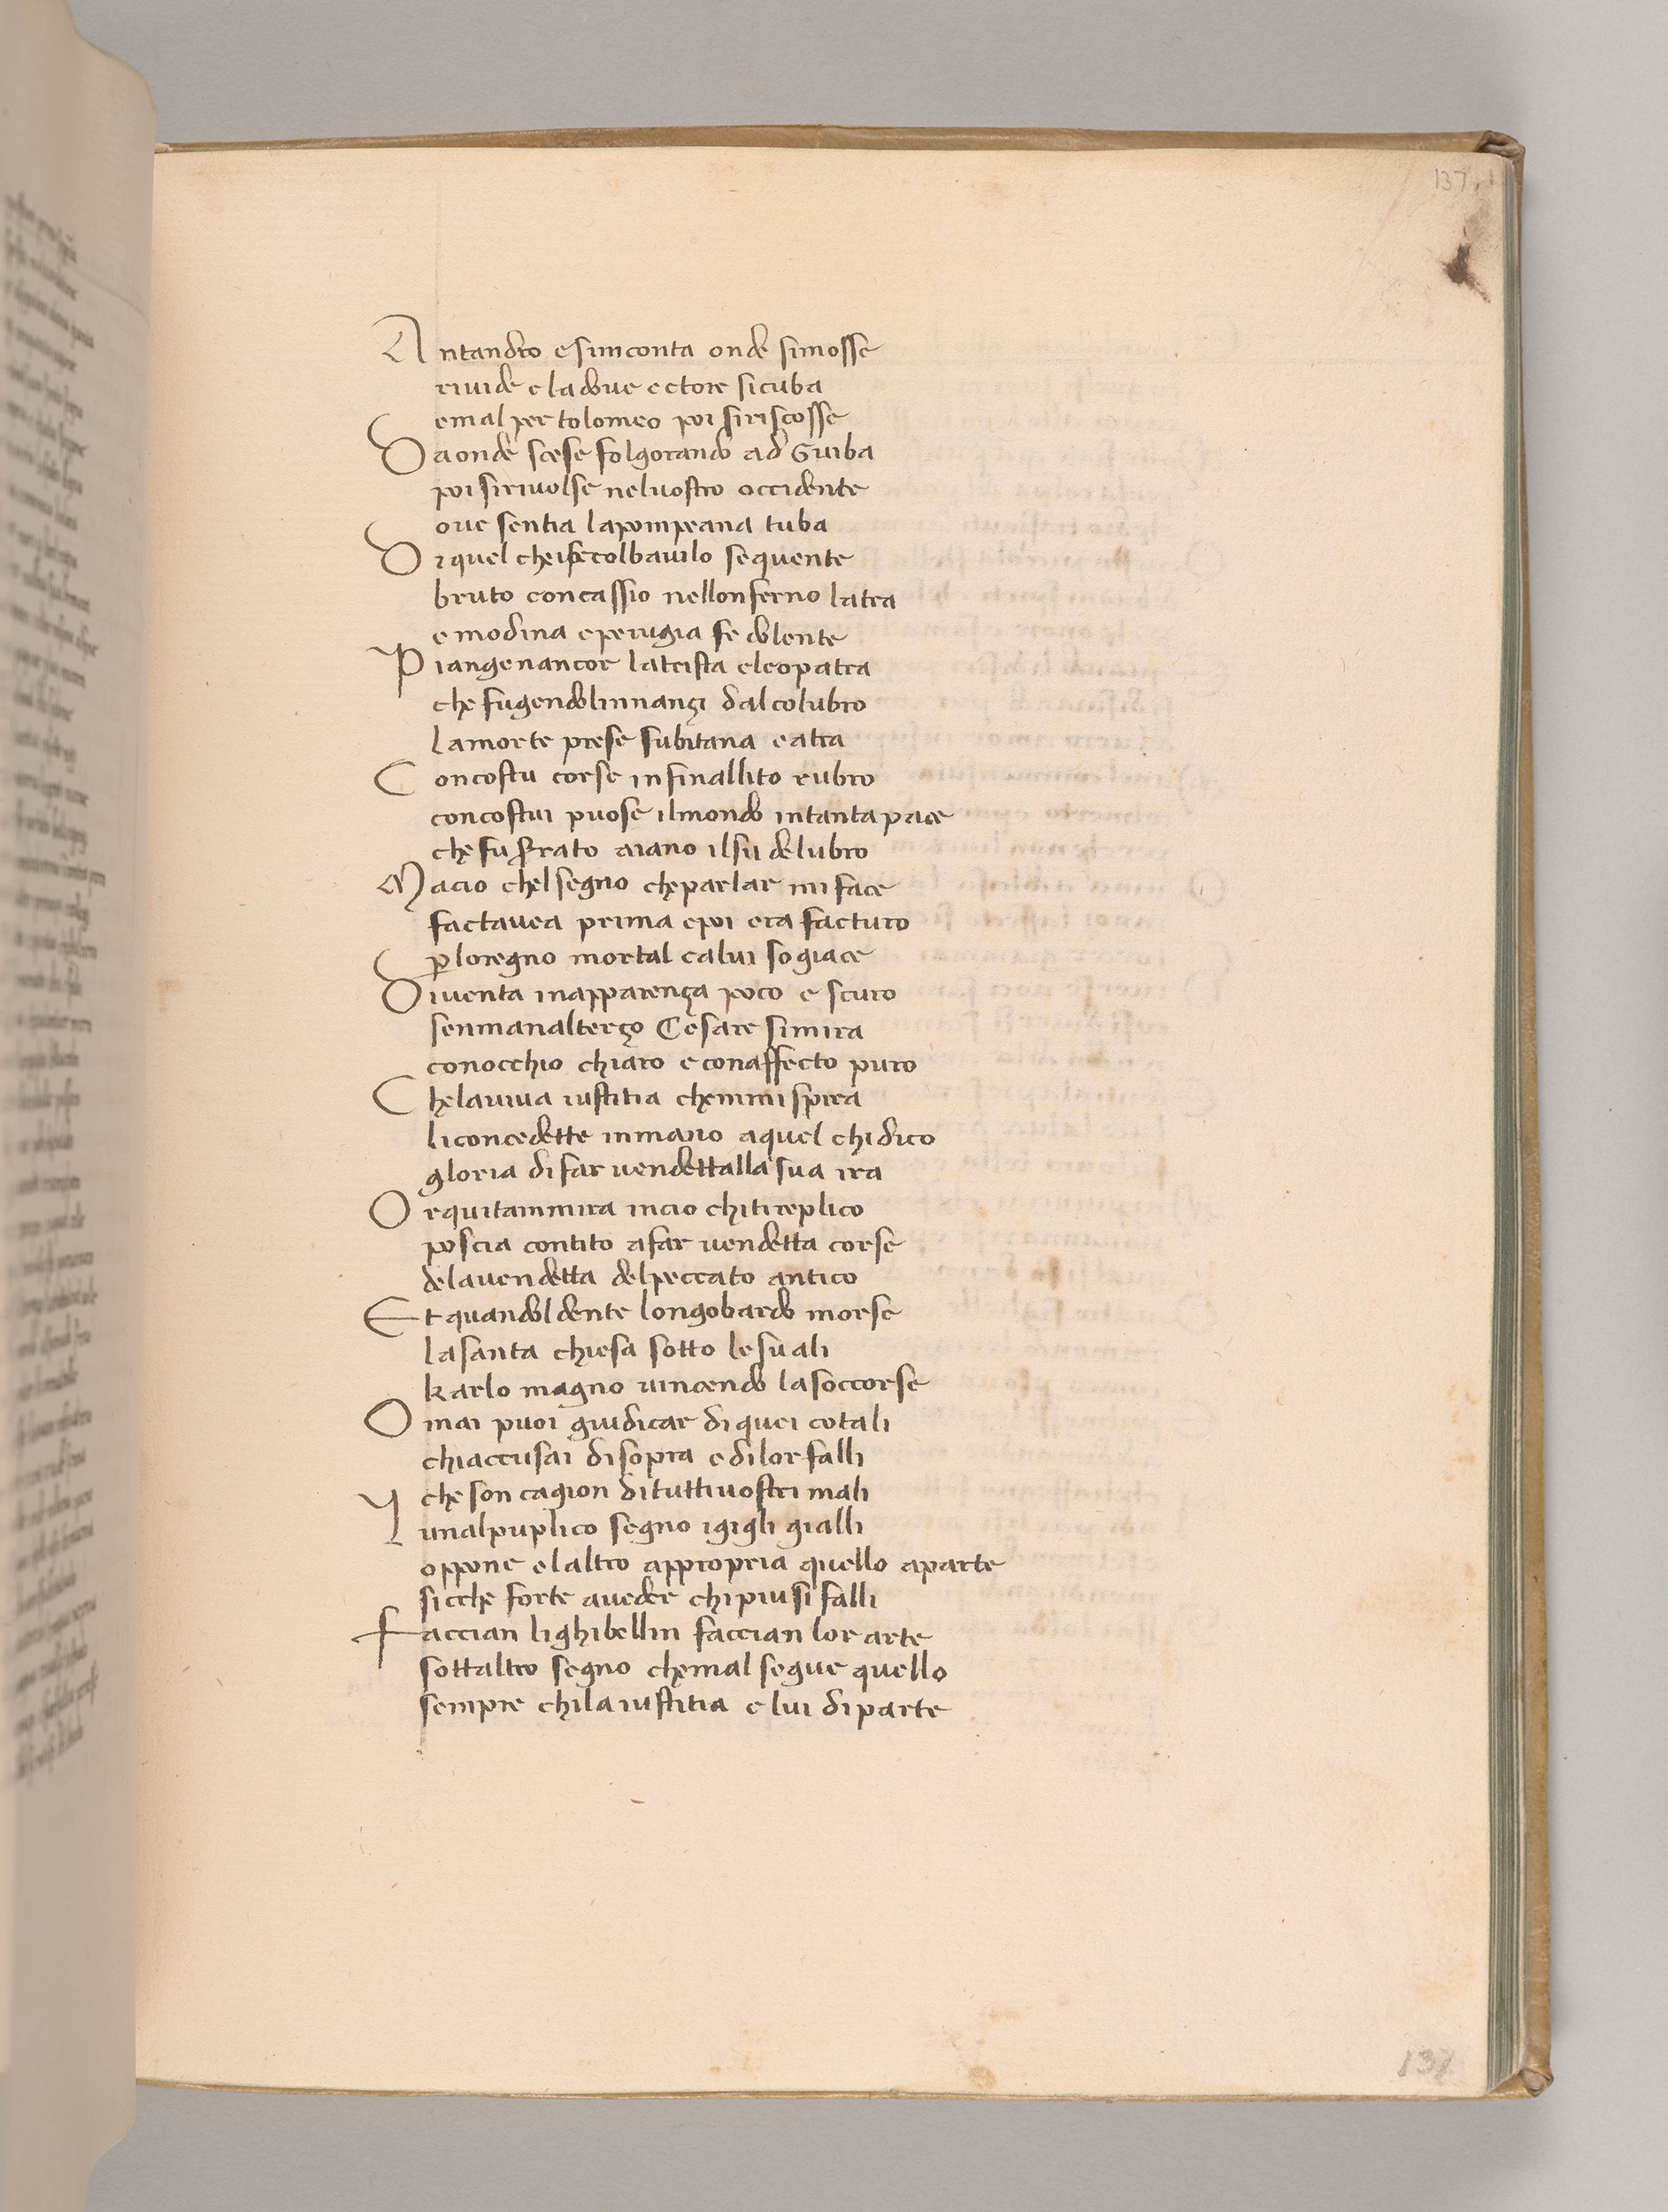 137
Antandro e simconta onde simosse
rivide e la dove ectore sicuba
emal per tolomeo poi siriscosse
Da onde scese folgorando ad Guiba
poi sirivolse nelvostro occidente
ove sentia lapompeana tuba
Di quel cheifecolbavilo sequente
bruto concassio nellonferno latra
e modina eperugia fe dolente
Piangenancor latrista cleopatra
che fugendolinnançi dalcolubro
lamorte prese subitana eatra
Concostu corse infinallito rubro
concostui puose ilmondo intantapace
che fu serrato aiano ilsu delubro
Macio chelsegno cheparlar mi face
factavea prima epoi era facturo
ꝑloregno mortal calui sogiace
Diventa inapparença poco e scuro
senmanalterço Cesare simira
conocchio chiaro e conaffecto puro
Chelaviva iustitia chemmi spira
liconcedette inmano aquel chi dico
gloria difar vendettalla sua ira
Orquitammira incio chitireplico
poscia contito afar vendetta corse
delavendetta delpeccato antico
Et quandoldente longobardo morse
lasanta chiesa sotto lesuali
karlo magno vincendo lasoccorse
Omai puoi giudicar diquei cotali
chiaccusai disopra edilorfalli
che son cagion dituttivostri mali
Lunalpuplico segno igigli gialli
oppone elaltro appropria quello aparte
sicche forte aveder chipiusi falli
faccian lighibellin faccian lor arte
sottaltro segno chemal segue quello
sempre chilaiustitia e lui diparte
137